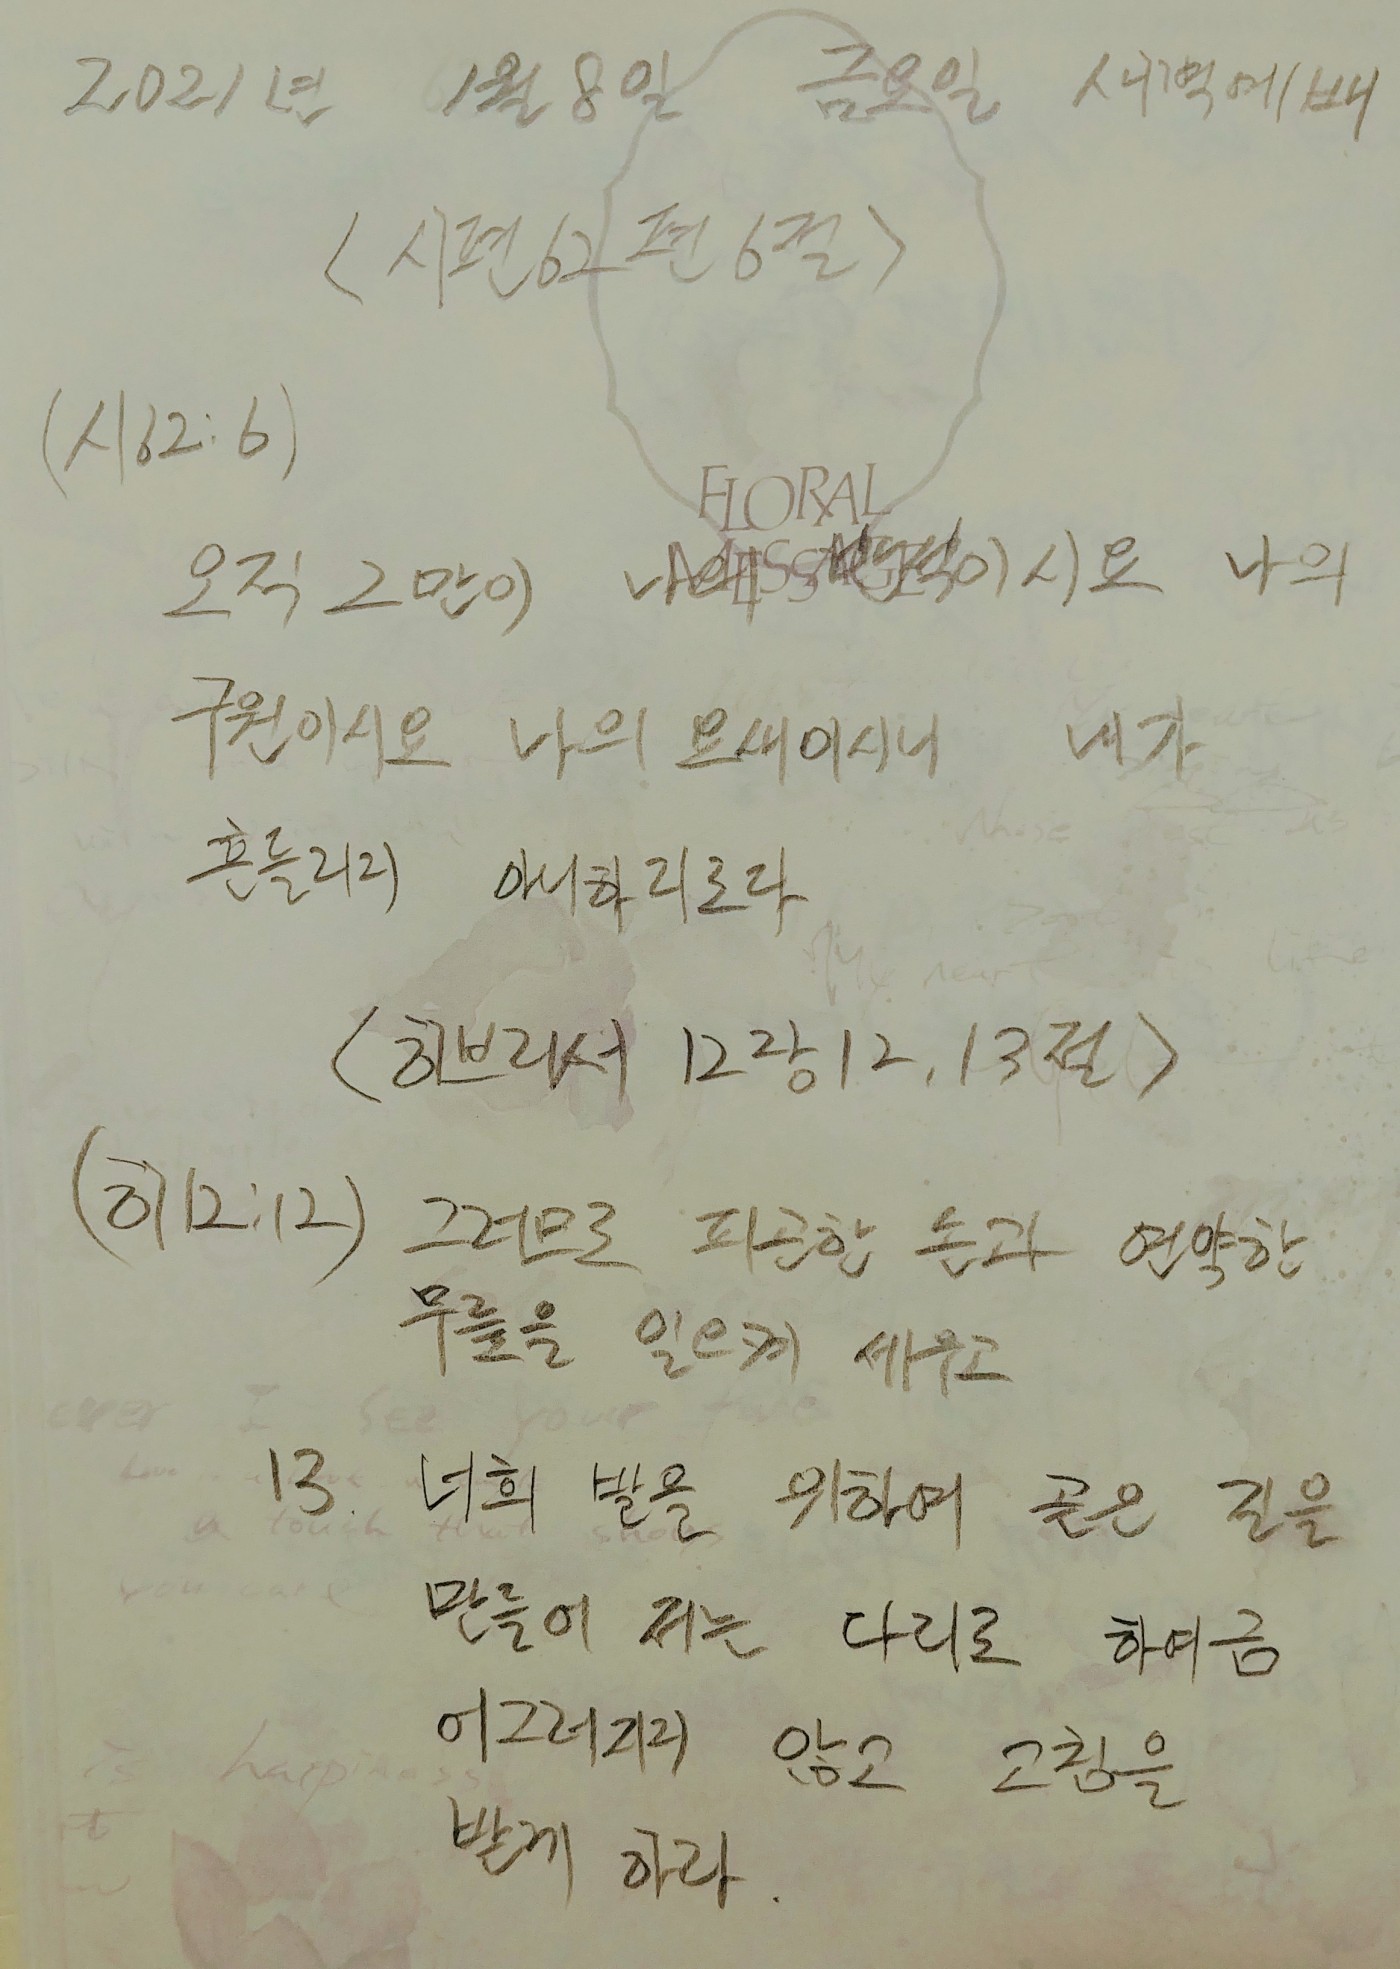 2021년 1월 8일 금요일 새벽예배
<시편62편 6절>
(시62:6)
FLORAL
MESSAGE
오직 그만이 나의 반석이시요 나의
구원이시요 나의 요새이시니 내가
흔들리지 아니하리로다
<히브리서 12장 12, 13절>
(히12:12) 그러므로 피곤한 손과 연약한
무릎을 일으켜 세우고
13. 너희 발을 위하여 곧은 길을
만들어 저는 다리로 하여금
어그러지지 않고 고침을
받게 하라.
ever I see your
a touch that shows
you care
is happiness